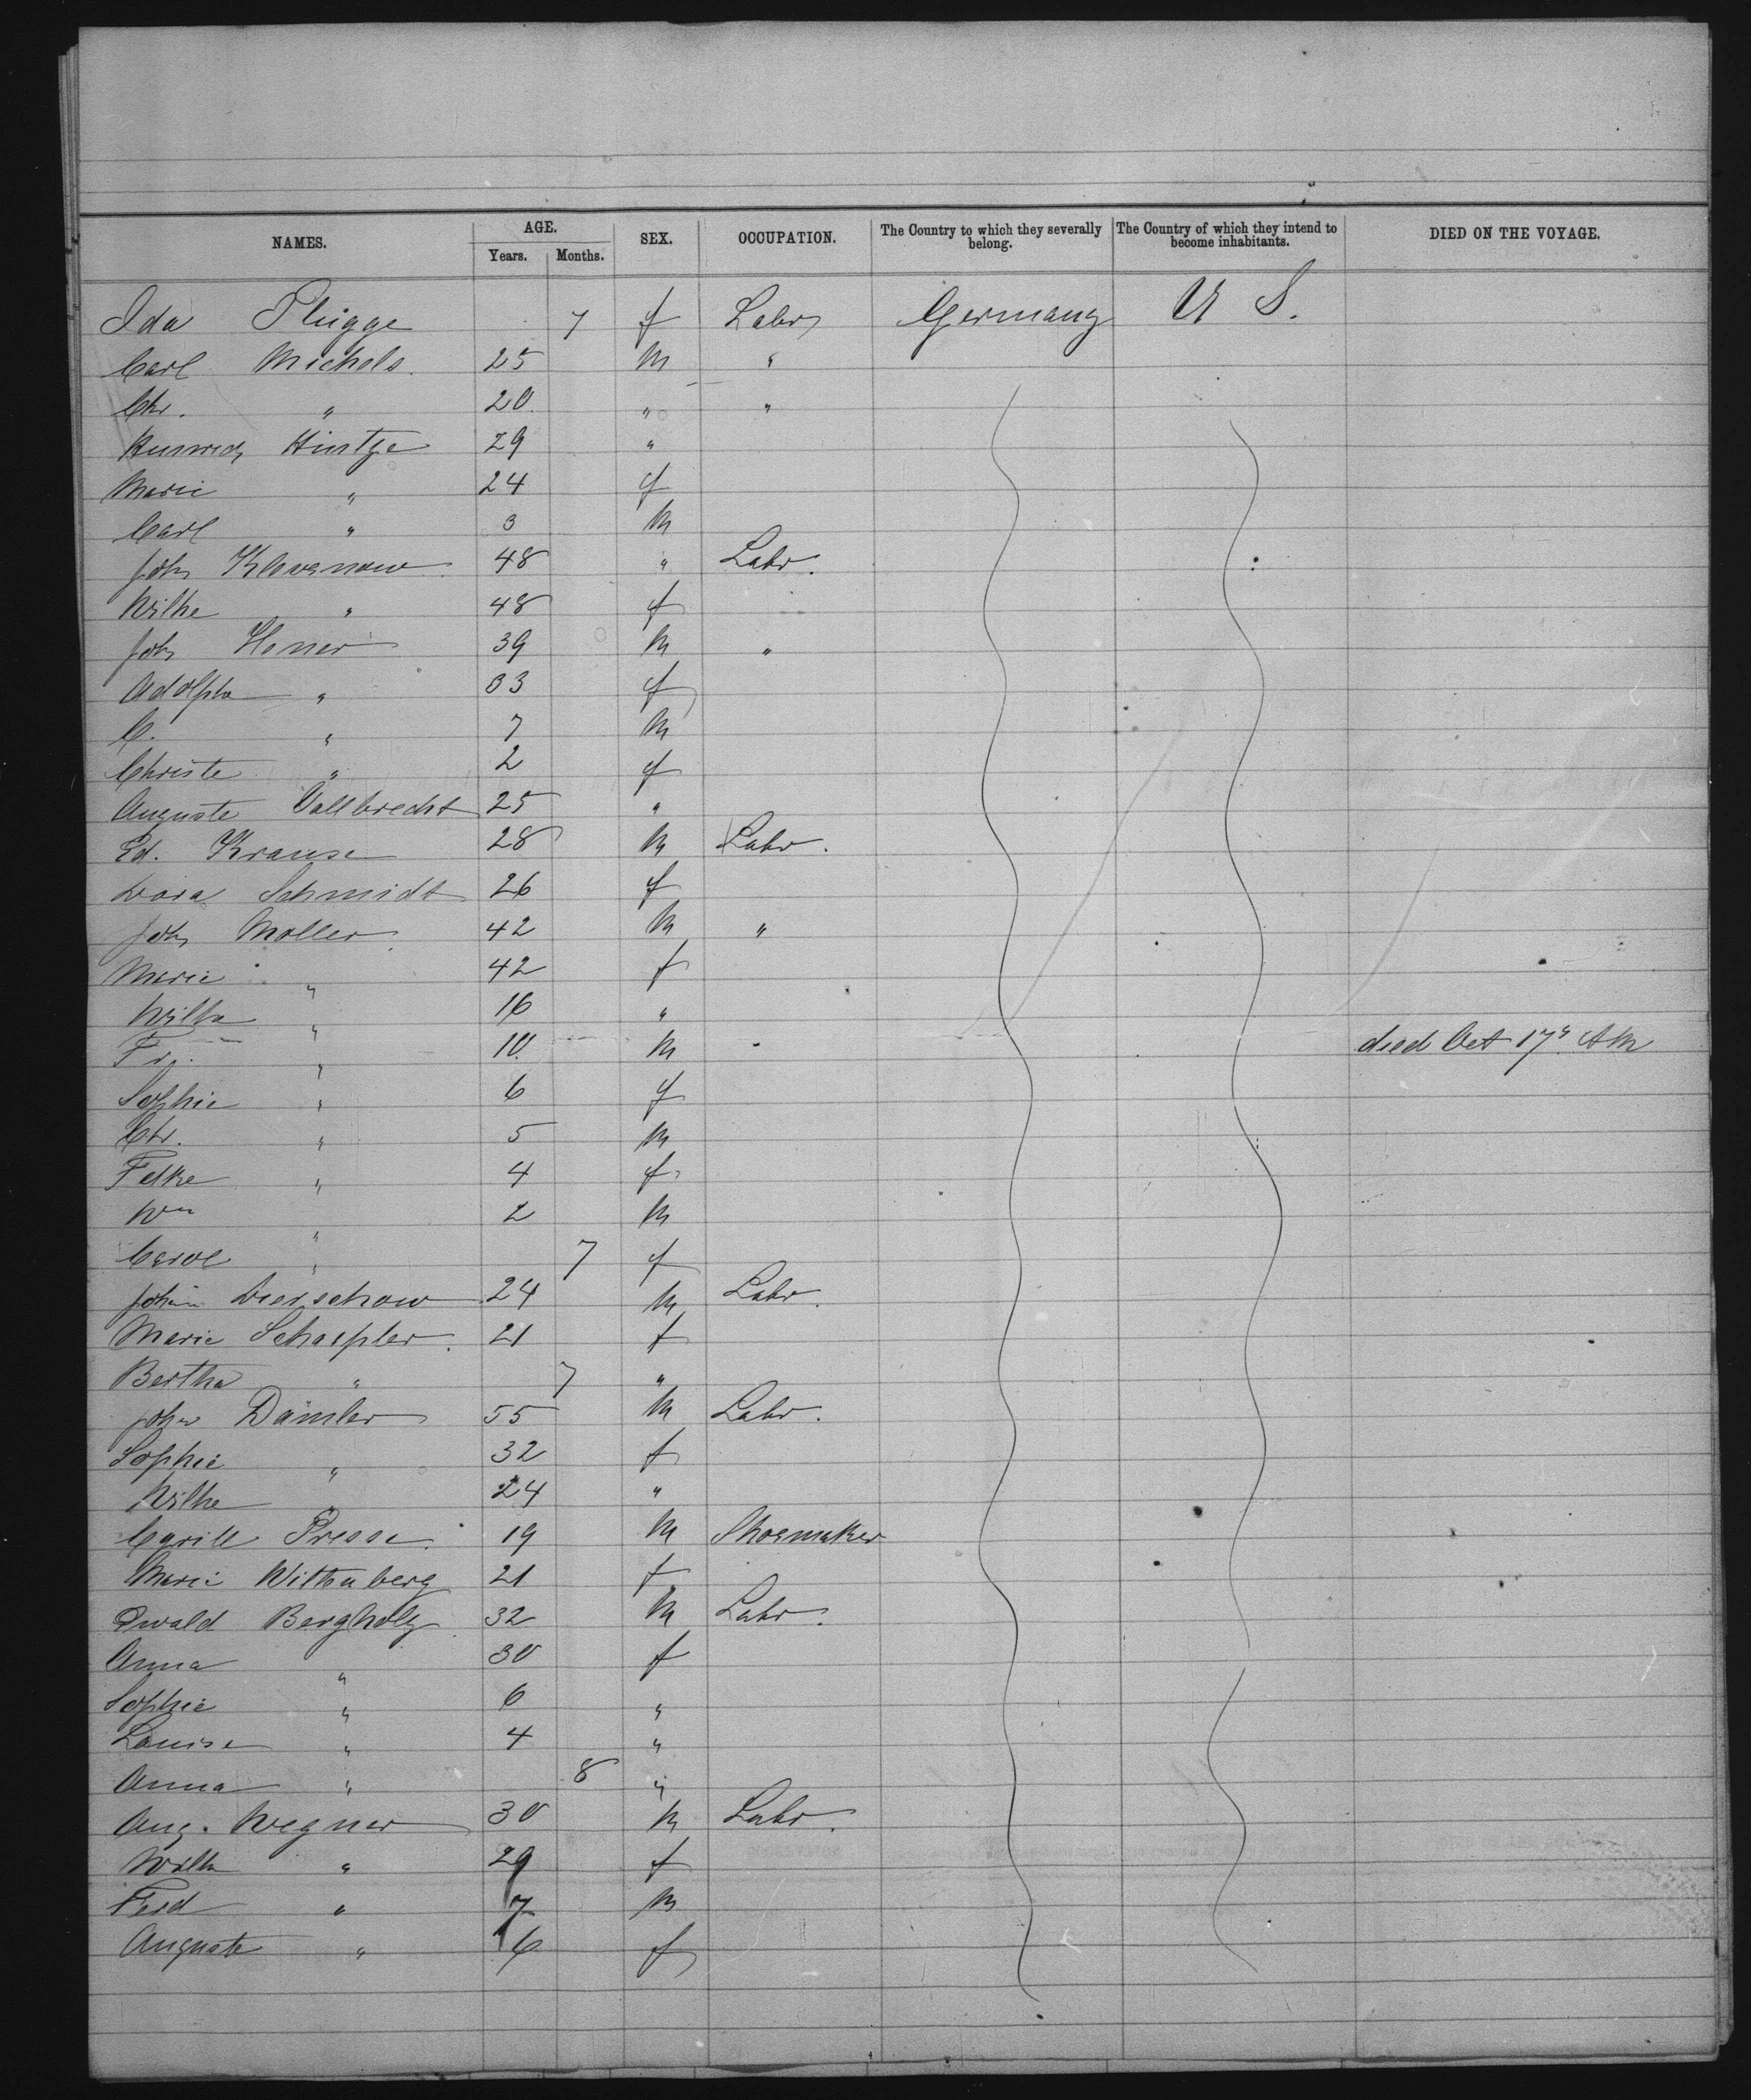 NAMES. AGE. SEX. OCCUPATION. The Country to which they severally belong. The Country of which they intend to become inhabitants. DIED ON THE VOYAGE.
Years. Months.
Ida Plügge 7 f Labr Germany U S.
Carl Michels. 25 M "
Chr. " 20. " "
Hintze 29 "
Marie " 24 f
Carl " 3 M
Joh Klevenow 48 " Labr.
Wilhe " 48 f
Joh Hener 39 M "
Adolpha " 33 f
C. " 7 M
Christe " 2 f
Auguste Vallbrecht 25 "
Ed. Krause 28 M Labr.
Dora Schmidt 26 f
Joh Moller 42 M "
Marie " 42 f
Wilha " 16 "
Fr. " 10. M died Oct 17" AM
Sophie " 6 f
Chr. " 5 M
Felke " 4 f
Wm " 2 M
Carol " 7 f
Johann Dierschow 24 M Labr.
Marie Schaepler. 21 f
Bertha " 7 "
John Dämler 55 M Labr.
Sophie " 32 f
Wilhe " 24 "
Cyrill Presse. 19 M Shoemaker
Marie Wittenberg 21 f
Ewald Bergholz 32 M Labr.
Anna " 30 f
Sophie " 6 "
Louise " 4 "
Anna " 8 "
Aug. Wegner 30 M Labr.
Wilh " 29 f
Ferd " 7 M
Auguste " 6 f